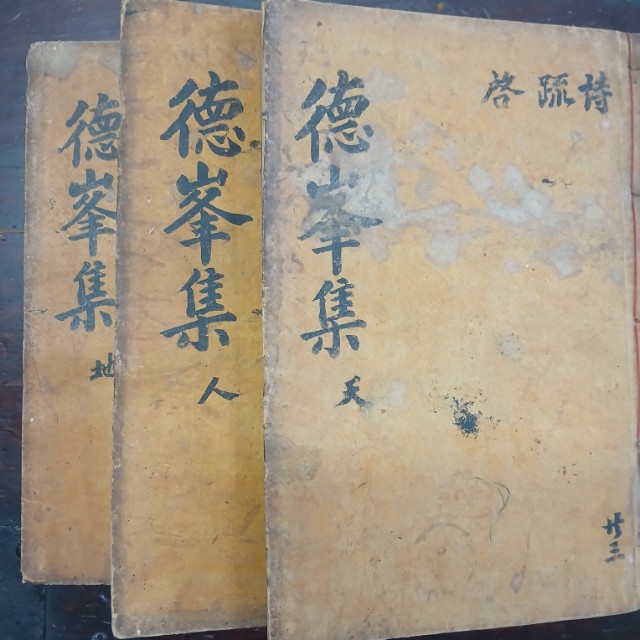 德峯集 天
詩 疏 啓
卄三
德峯集 人
德峯集 地